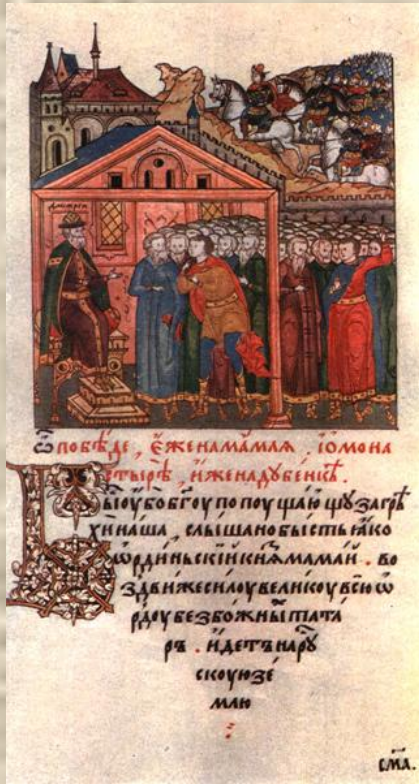 дмитрiи
Ѡ побѣде , є́же на мамая . ѝ ѡ мона
стырѣ , и́же на дꙋбенкѣ .
Бы́ оу́бо бг҃оу попоущаю́щꙋ за грѣ
хи наша , слы́шано бысть ꙗ́ко
ѡ҆рдиньскїи кн҃зь мамай . во
здвиже силоу великоу всю ѡ҆
рдоу безбожны̏ татa
ръ . и҆детъ на рꙋ
скоую зе́
млю
см҃а.